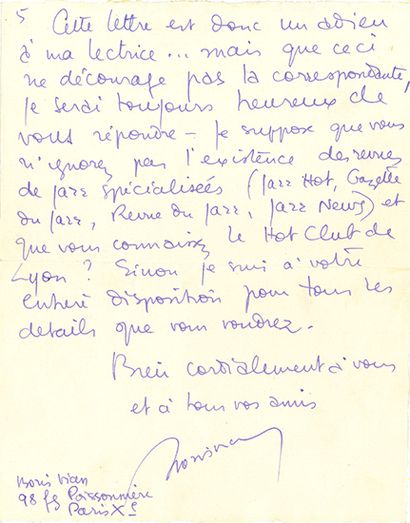 5 Cette lettre est donc un adieu
à ma lectrice... mais que ceci
ne décourage pas la correspondante,
je serai toujours heureux de
vous répondre – Je suppose que vous
n'ignorez pas l'existence des revues
de jazz spécialisées (Jazz Hot, Gazette
du Jazz, Revue du Jazz, Jazz News) et
que vous connaissez le Hot Club de
Lyon ? Sinon je suis à votre
entière disposition pour tous les
details que vous voudrez.
Bien cordialement à vous
et à tous vos amis
Boris Vian
98 fg Poissonnière
Paris Xe